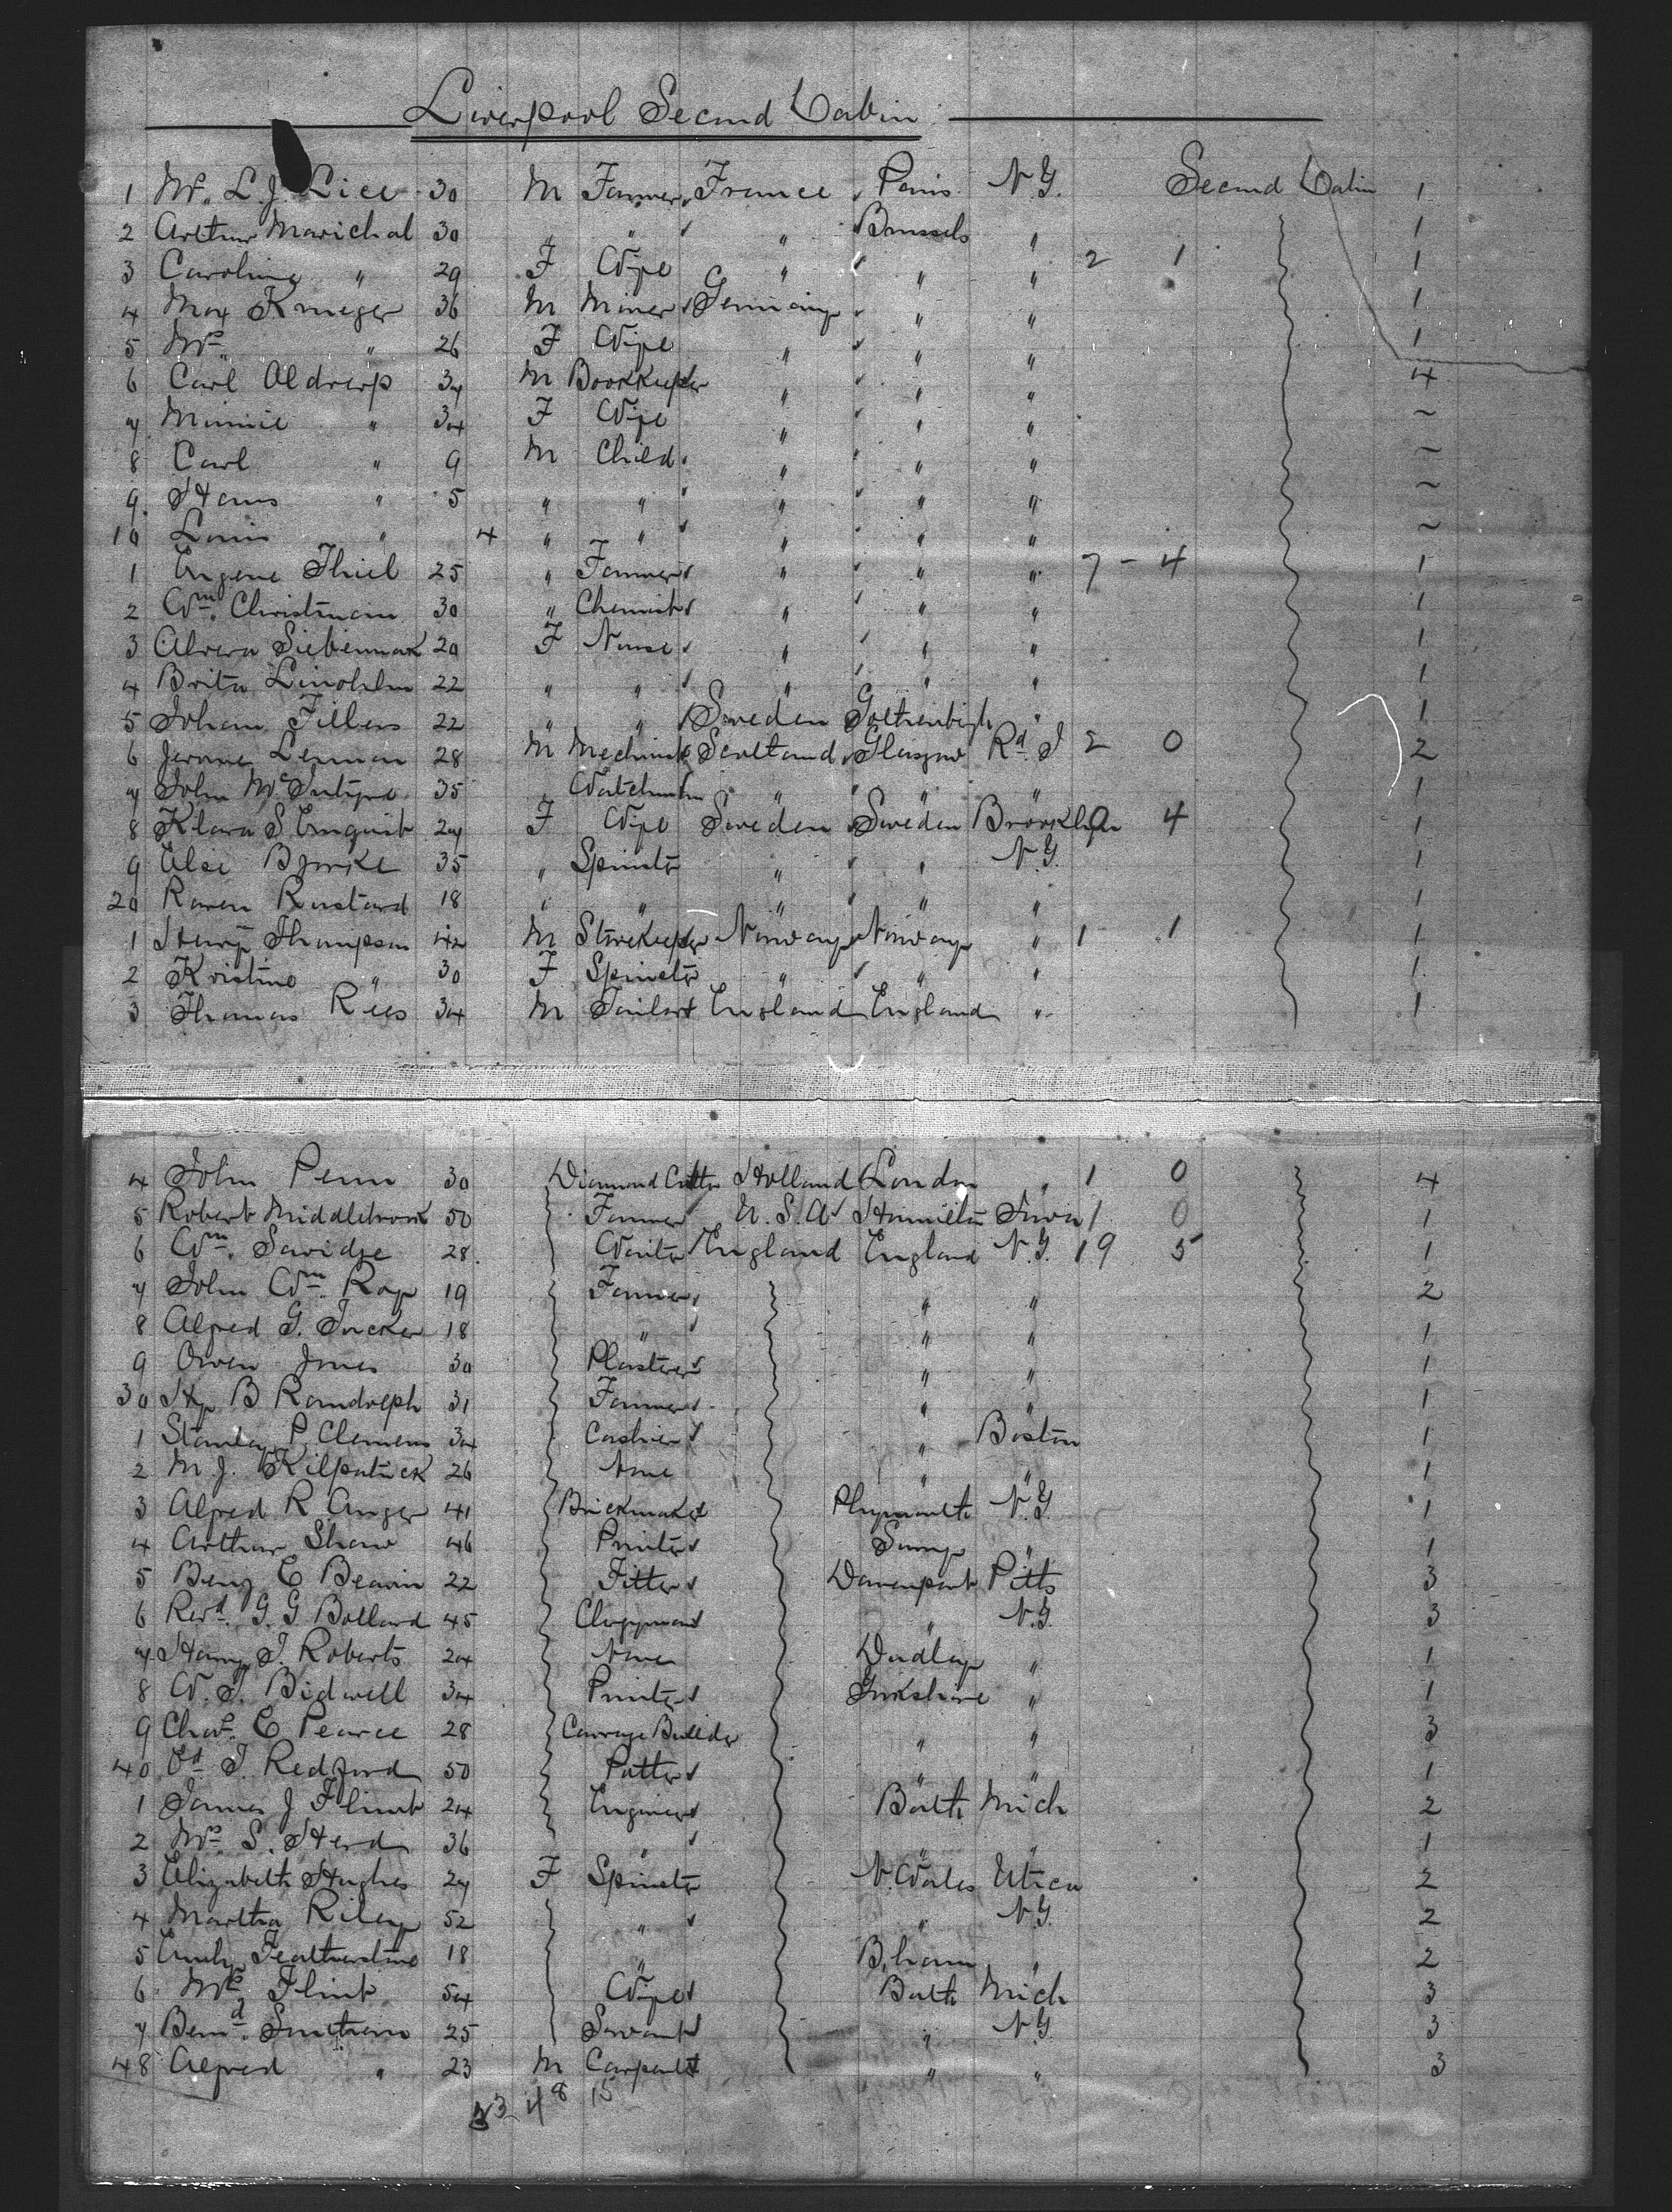 Liverpool Second Cabin
1 Mr. L. J. Lice 30 M Farmer France Paris N.Y. Second Cabin 1
2 Arthur Marichal 30 " " " Brussels " 1
3 Caroline " 29 F Wife " " " 2 1 1
4 Max Krueger 36 M Miner Germany " " 1
5 Mrs " 26 F Wife " " " 1
6 Carl Aldrerp 37 M Bookkeeper " " " 4
7 Minnie " 34 F Wife " " " ~
8 Carl " 9 M Child " " " ~
9 Hans " 5 " " " " " ~
10 Louis " 4 " " " " " ~
1 Eugene Thiel 25 " Farmer " " " 7 - 4 1
2 Wm. Christmann 30 " Chemist " " " 1
3 Alvera Siebenmark 20 F Nurse " " " 1
4 Brita Lindholm 22 " " " " " 1
5 Johan Filbers 22 " " Sweden Gothenbigh " 1
6 Jerome Lennan 28 M Mechinic Scotland Glasgow Rd. I 2 0 2
7 John McIntyre 35 " Watchman " " " 1
8 Klara S. Enquist 27 F Wife Sweden Sweden Brooklyn 4 1
9 Else Bjerke 35 " Spinster " " N.Y. 1
20 Karen Rustard 18 " " " " " 1
1 Henry Thompson 42 M Storekeeper Norway Norway " 1 1 1
2 Kristine " 30 F Spinster " " " 1
3 Thomas Rees 34 M Tailor England England " 1
4 John Penn 30 Diamond Cutter Holland London " 1 0 4
5 Robert Middlebrook 50 Farmer U.S.A Hamilton Iowa 1 0 1
6 Wm. Savidge 28 Waiter England England N.Y. 19 5 1
7 John Wm. Ray 19 Farmer " " 2
8 Alfred G. Tucker 18 " " " 1
9 Owen Jones 30 Plasterer " " 1
30 Hy B Randolph 31 Farmer " " 1
1 Stanley P. Clemens 34 Cashier " Boston 1
2 M. J. Kilpatrick 26 None " " 1
3 Alfred R. Anger 41 Brickmaker Plymouth N.Y. 1
4 Arthur Shaw 46 Printer Surry " 1
5 Benj E Beavin 22 Fitter Davenport Pitts 3
6 Revd. G. G Bollard 45 Clergyman " N.Y. 3
7 Harry J. Roberts 24 None Dudley " 1
8 W. J. Bidwell 34 Printer Yorkshire " 1
9 Chas. E Pearce 28 Carrage Builder " " 3
40 Ed. J. Redford 50 Potter " " 1
1 James J Flint 24 Engineer Bath Mich 2
2 Mr. S. Herd 36 " " " 1
3 Elizabeth Hughes 27 F Spinster N. Wales Utica 2
4 Martha Riley 52 " " N.Y. 2
5 Emily Featherstone 18 " B.ham " 2
6 Mrs Flint 54 Wife Bath Mich 3
7 Bernd. Smitham 25 Servant " N.Y. 3
48 Alfred " 23 M Carpenter " " 3
33 4 8 15